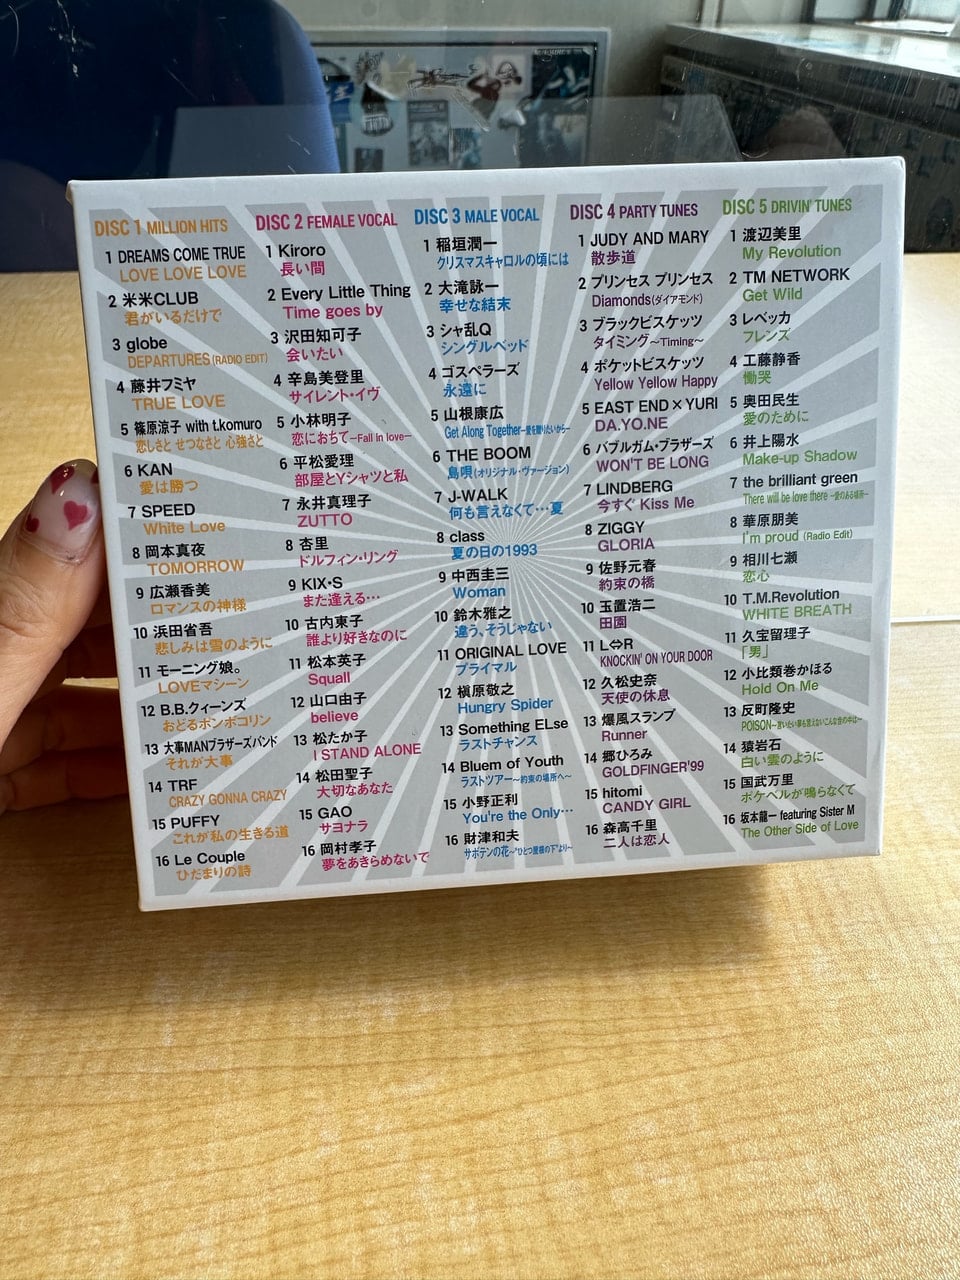 DISC 1 MILLION HITS
1 DREAMS COME TRUE
LOVE LOVE LOVE
2 米米CLUB
君がいるだけで
3 globe
DEPARTURES (RADIO EDIT)
4 藤井フミヤ
TRUE LOVE
5 篠原涼子 with t.komuro
恋しさと せつなさと 心強さと
6 KAN
愛は勝つ
7 SPEED
White Love
8 岡本真夜
TOMORROW
9 広瀬香美
ロマンスの神様
10 浜田省吾
悲しみは雪のように
11 モーニング娘。
LOVEマシーン
12 B.B.クィーンズ
おどるポンポコリン
13 大事MANブラザーズバンド
それが大事
14 TRF
CRAZY GONNA CRAZY
15 PUFFY
これが私の生きる道
16 Le Couple
ひだまりの詩
DISC 2 FEMALE VOCAL
1 Kiroro
長い間
2 Every Little Thing
Time goes by
3 沢田知可子
会いたい
4 辛島美登里
サイレント・イヴ
5 小林明子
恋におちて—Fall in love—
6 平松愛理
部屋とYシャツと私
7 永井真理子
ZUTTO
8 杏里
ドルフィン・リング
9 KIX・S
また逢える…
10 古内東子
誰より好きなのに
11 松本英子
Squall
12 山口由子
believe
13 松たか子
I STAND ALONE
14 松田聖子
大切なあなた
15 GAO
サヨナラ
16 岡村孝子
夢をあきらめないで
DISC 3 MALE VOCAL
1 稲垣潤一
クリスマスキャロルの頃には
2 大滝詠一
幸せな結末
3 シャ乱Q
シングルベッド
4 ゴスペラーズ
永遠に
5 山根康広
Get Along Together—愛を贈りたいから—
6 THE BOOM
島唄(オリジナル・ヴァージョン)
7 J-WALK
何も言えなくて…夏
8 class
夏の日の1993
9 中西圭三
Woman
10 鈴木雅之
違う、そうじゃない
11 ORIGINAL LOVE
プライマル
12 槇原敬之
Hungry Spider
13 Something ELse
ラストチャンス
14 Bluem of Youth
ラストツアー〜約束の場所へ〜
15 小野正利
You're the Only…
16 財津和夫
サボテンの花〜"ひとつ屋根の下"より〜
DISC 4 PARTY TUNES
1 JUDY AND MARY
散歩道
2 プリンセス プリンセス
Diamonds(ダイアモンド)
3 ブラックビスケッツ
タイミング〜Timing〜
4 ポケットビスケッツ
Yellow Yellow Happy
5 EAST END×YURI
DA.YO.NE
6 バブルガム・ブラザーズ
WON'T BE LONG
7 LINDBERG
今すぐ Kiss Me
8 ZIGGY
GLORIA
9 佐野元春
約束の橋
10 玉置浩二
田園
11 L⇔R
KNOCKIN' ON YOUR DOOR
12 久松史奈
天使の休息
13 爆風スランプ
Runner
14 郷ひろみ
GOLDFINGER'99
15 hitomi
CANDY GIRL
16 森高千里
二人は恋人
DISC 5 DRIVIN' TUNES
1 渡辺美里
My Revolution
2 TM NETWORK
Get Wild
3 レベッカ
フレンズ
4 工藤静香
慟哭
5 奥田民生
愛のために
6 井上陽水
Make-up Shadow
7 the brilliant green
There will be love there —愛のある場所—
8 華原朋美
I'm proud (Radio Edit)
9 相川七瀬
恋心
10 T.M.Revolution
WHITE BREATH
11 久宝留理子
「男」
12 小比類巻かほる
Hold On Me
13 反町隆史
POISON〜言いたい事も言えないこんな世の中は〜
14 猿岩石
白い雲のように
15 国武万里
ポケベルが鳴らなくて
16 坂本龍一 featuring Sister M
The Other Side of Love